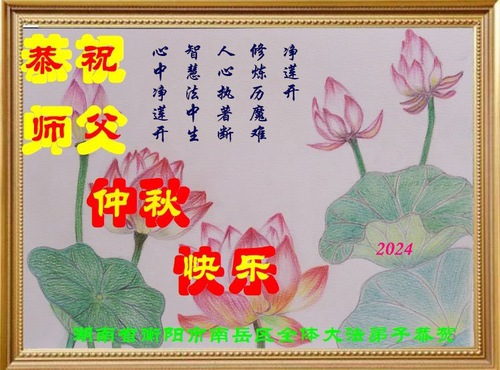 恭祝
师父
仲秋
快乐
净莲开
修炼历魔难
人心执著断
智慧法中生
心中净莲开
2024
湖南省衡阳市南岳区全体大法弟子恭祝